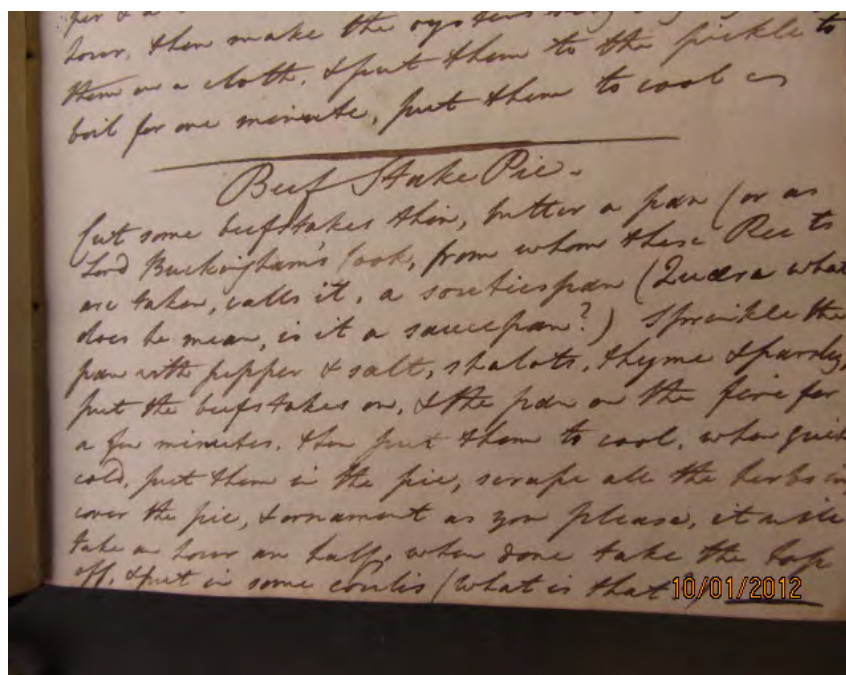 hour, then make the oysters
them on a cloth, & put them to the pickle to
boil for one minute, put them to cool
Beef Stake Pie.
Cut some beefstakes thin, butter a pan (or as
Lord Buckingham's Cook, from whom these Rects
are taken, calls it, a soutiespan (Quæra what
does he mean, is it a saucepan?) Sprinkle the
pan with pepper & salt, shalots, thyme & parsley,
put the beefstakes on, & the pan on the fire for
a few minutes, then put them to cool, when quite
cold, put them in the pie, scrape all the herbs in,
cover the pie, & ornament as you please, it will
take an hour an half, when done take the top
off, & put in some coulis (what is that?)
10/01/2012